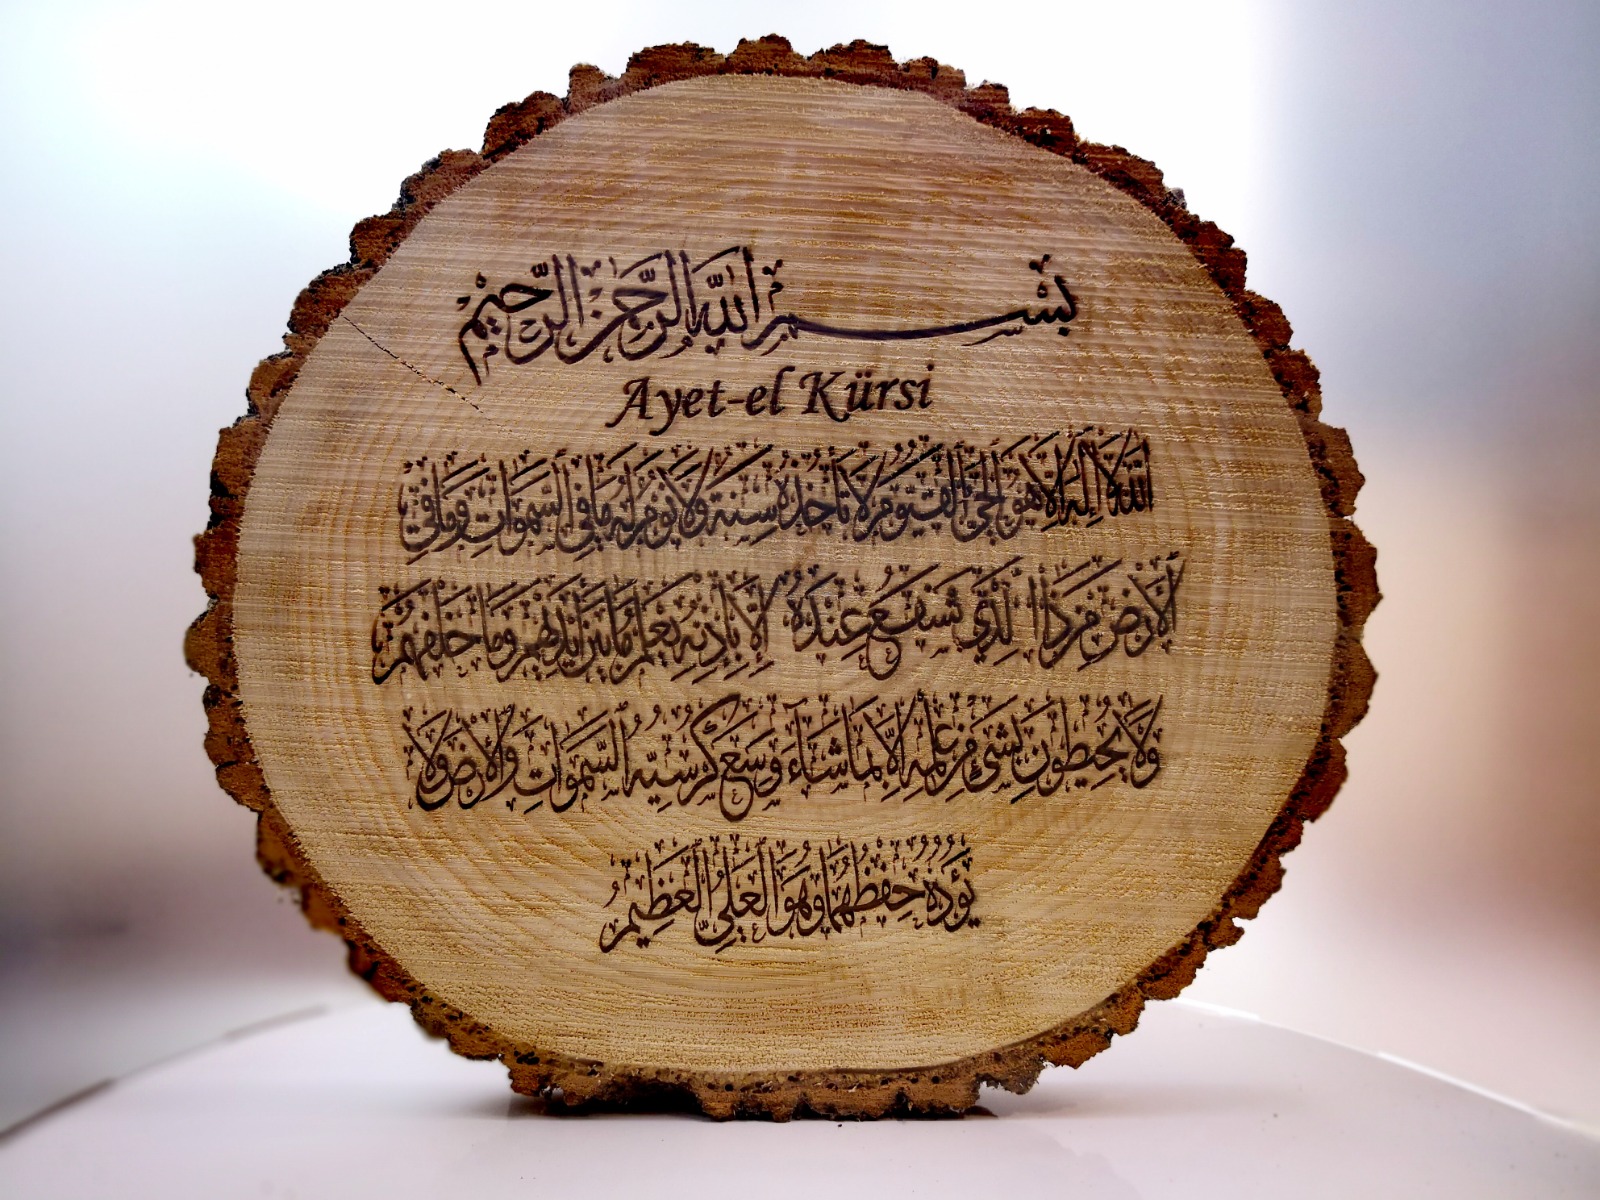 بِسْمِ اللَّهِ الرَّحْمَنِ الرَّحِيمِ
Ayet-el Kürsi
اللَّهُ لَا إِلَهَ إِلَّا هُوَ الْحَيُّ الْقَيُّومُ لَا تَأْخُذُهُ سِنَةٌ وَلَا نَوْمٌ لَهُ مَا فِي السَّمَوَاتِ وَمَا فِي
الْأَرْضِ مَنْ ذَا الَّذِي يَشْفَعُ عِنْدَهُ إِلَّا بِإِذْنِهِ يَعْلَمُ مَا بَيْنَ أَيْدِيهِمْ وَمَا خَلْفَهُمْ
وَلَا يُحِيطُونَ بِشَيْءٍ مِنْ عِلْمِهِ إِلَّا بِمَا شَاءَ وَسِعَ كُرْسِيُّهُ السَّمَوَاتِ وَالْأَرْضَ وَلَا
يَؤُدُهُ حِفْظُهُمَا وَهُوَ الْعَلِيُّ الْعَظِيمُ